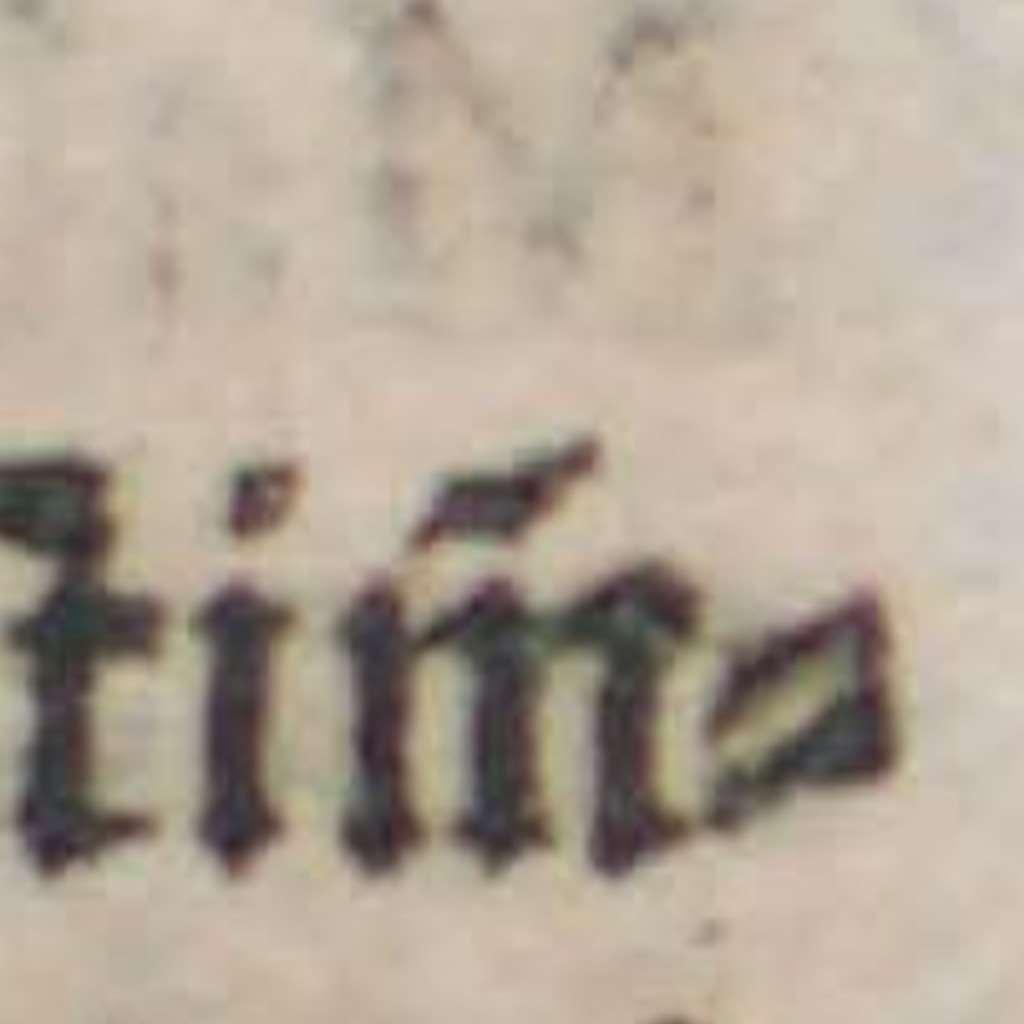 tim̃⸗